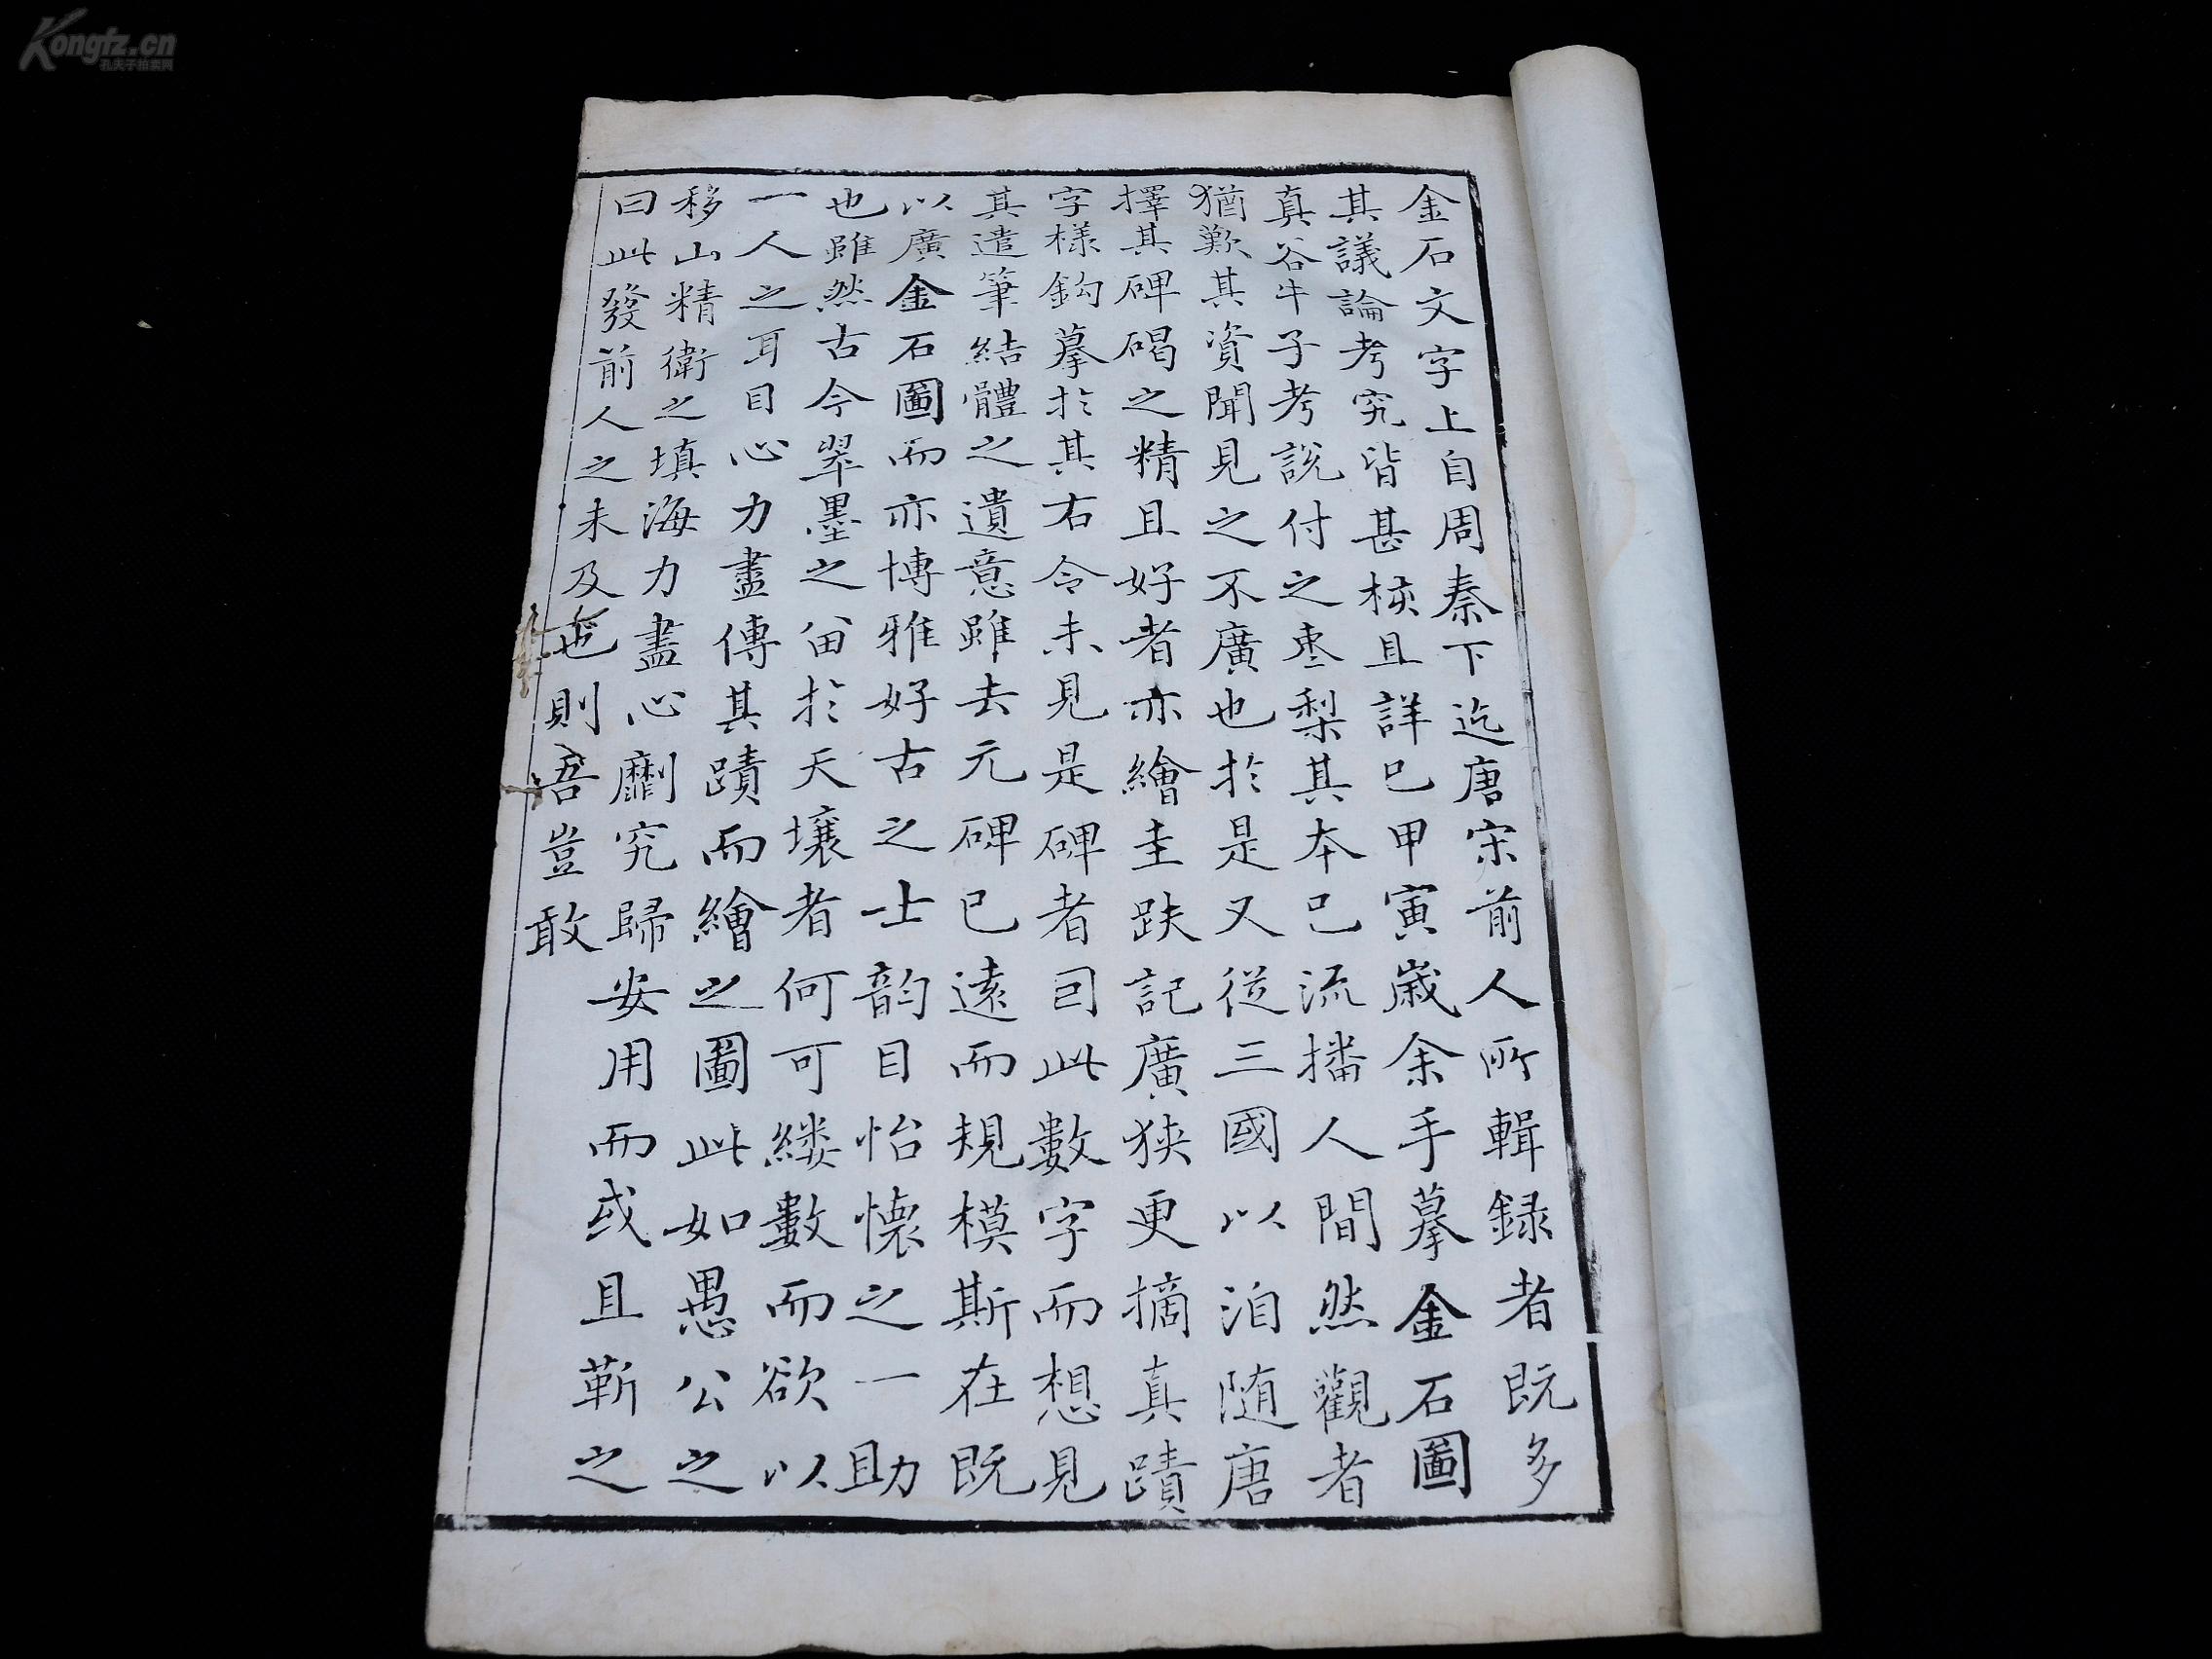 金石文字上自周秦下迄唐宋前人所輯録者既多
其議論考究皆甚核且詳已甲寅歲余手摹金石圖
真谷牛子考說付之棗梨其本已流播人間然觀者
猶歎其資聞見之不廣也於是又從三國以洎随唐
擇其碑碣之精且好者亦繪圭趺記廣狹更摘真蹟
字樣鈎摹於其右令未見是碑者卽此數字而想見
其遣筆結體之遺意雖去元碑已遠而規模斯在既
以廣金石圖而亦博雅好古之士韵目怡懷之一助
也雖然古今翠墨之留於天壤者何可縷數而欲以
一人之耳目心力盡傳其蹟而繪之圖此如愚公之
移山精衛之填海力盡心劘究歸安用而或且蘄之
曰此發前人之未及也則吾豈敢
Kongfz.cn
孔夫子拍卖网